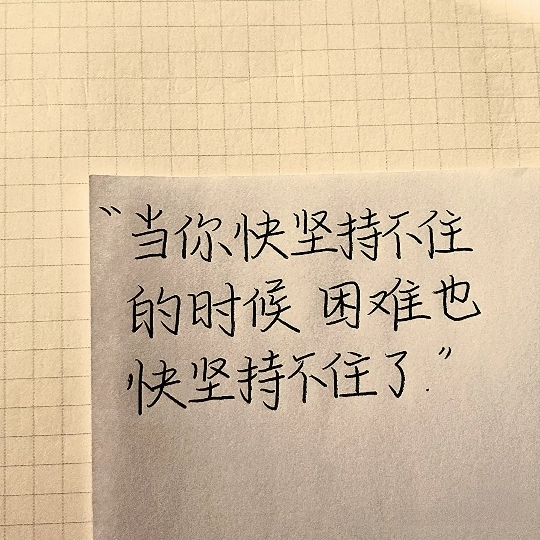 “当你快坚持不住
的时候 困难也
快坚持不住了.”